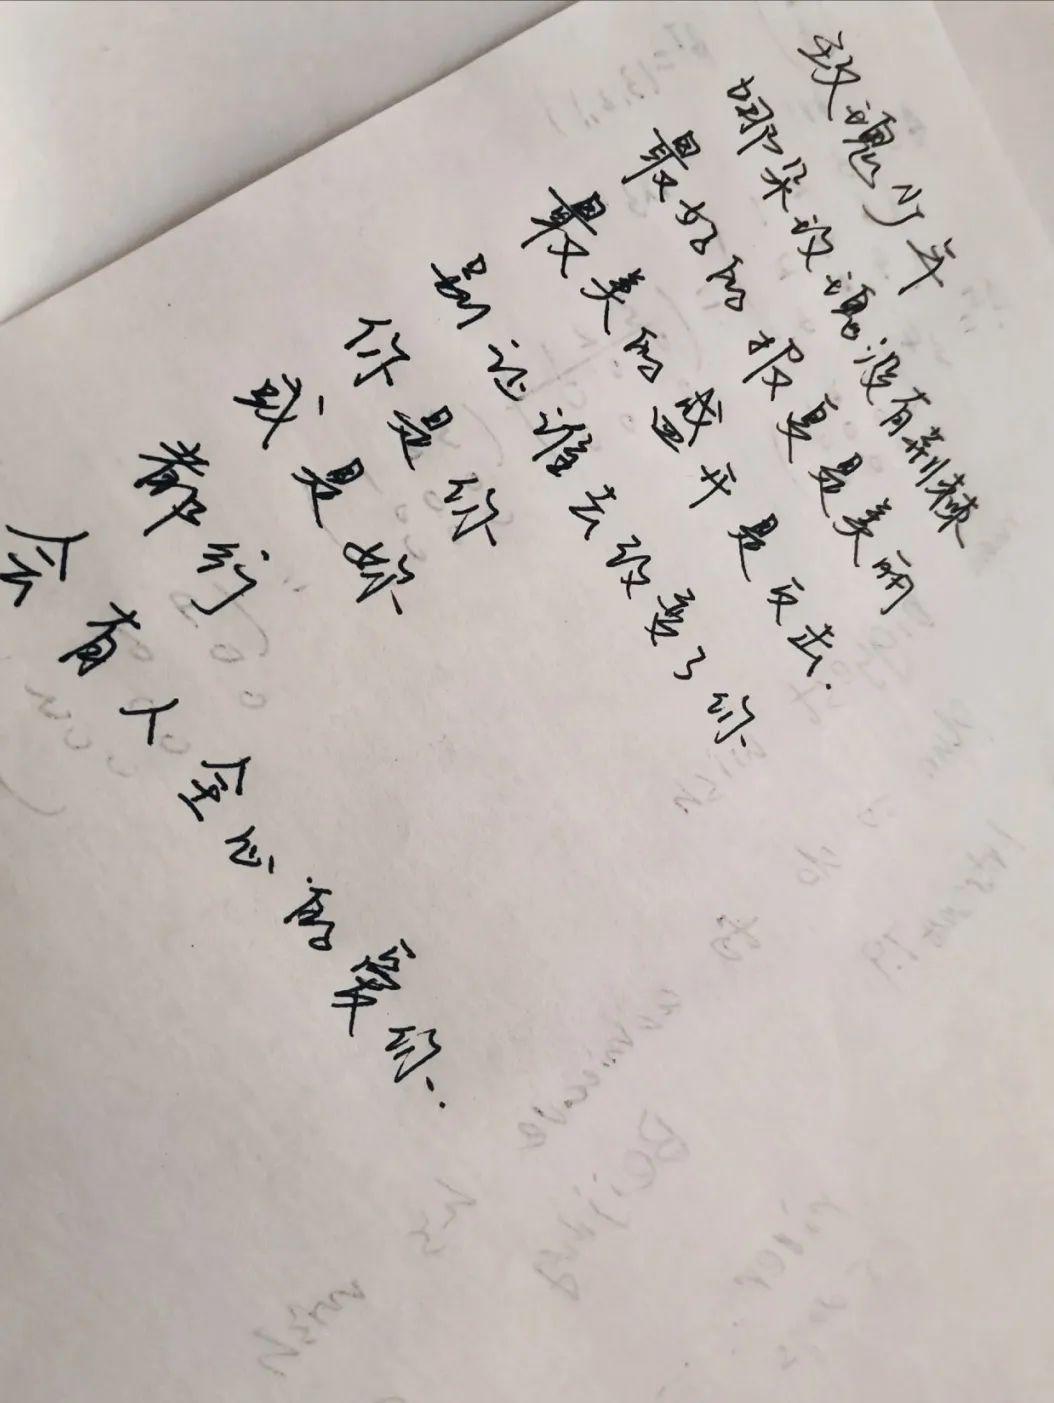 玫瑰少年
哪朵玫瑰没有荆棘
最好的报复是美丽
最美的盛开是反击.
别让谁去改变了你
你是你
或是妳
都行
会有人全心的爱你.